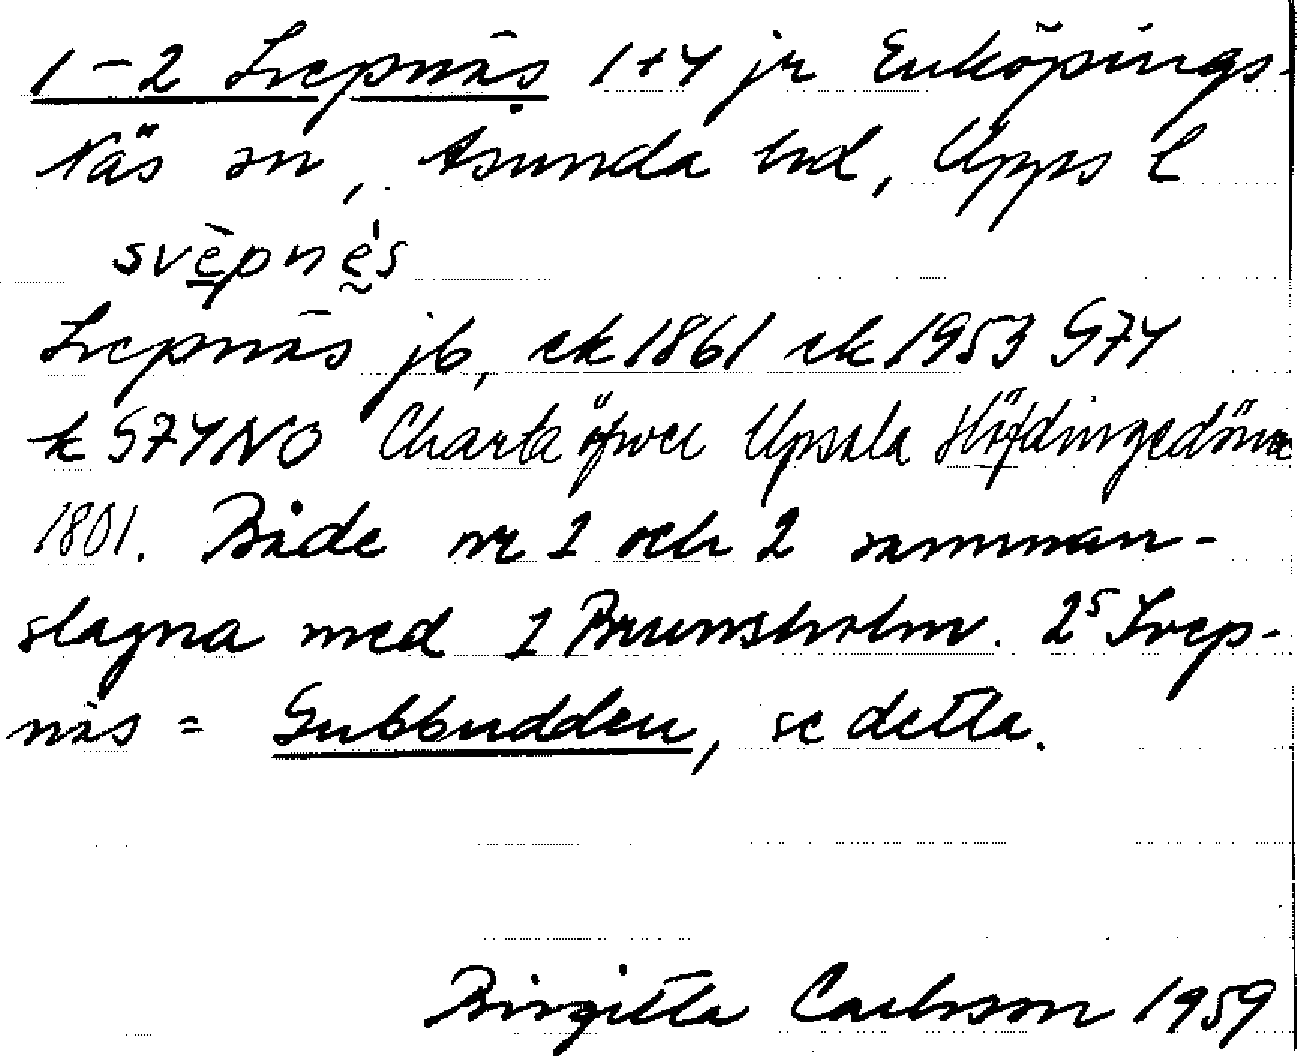 1–2 Svepnäs 1+4 jr Enköpings-
Näs sn, Åsunda hd, Upps l
svèpnè́s
Svepnäs jb, ek 1861 ek 1953 574
k 574NO Charta öfwer Upsala Höfdingedöme
1801. Både nr 1 och 2 samman-
slagna med 1 Brunsholm. 2s Svep-
näs = Gubbudden, se detta.
Birgitta Carlsson 1959